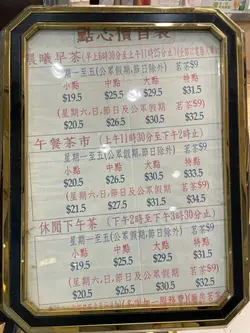 點心價目表
晨曦早茶(早上6時30分至上午11時25分止)
星期一至五(公眾假期,節日除外) 茗茶$9
小點 中點 大點 特點
$19.5 $25.5 $29.5 $31.5
(星期六,日,節日及公眾假期 茗茶$9)
$20.5 $26.5 $30.5 $32.5
午餐茶市 (上午11時30分至下午2時止)
星期一至五(公眾假期,節日除外) 茗茶$9
小點 中點 大點 特點
$20.5 $26.5 $30.5 $32.5
(星期六,日,節日及公眾假期 茗茶$9)
$21.5 $27.5 $31.5 $34.5
休閒下午茶 (下午2時至下午3時30分止)
星期一至五(公眾假期,節日除外) 茗茶$9
小點 中點 大點 特點
$19.5 $25.5 $29.5 $31.5
(星期六,日,節日及公眾假期 茗茶$9)
$20.5 $26.5 $30.5 $32.5